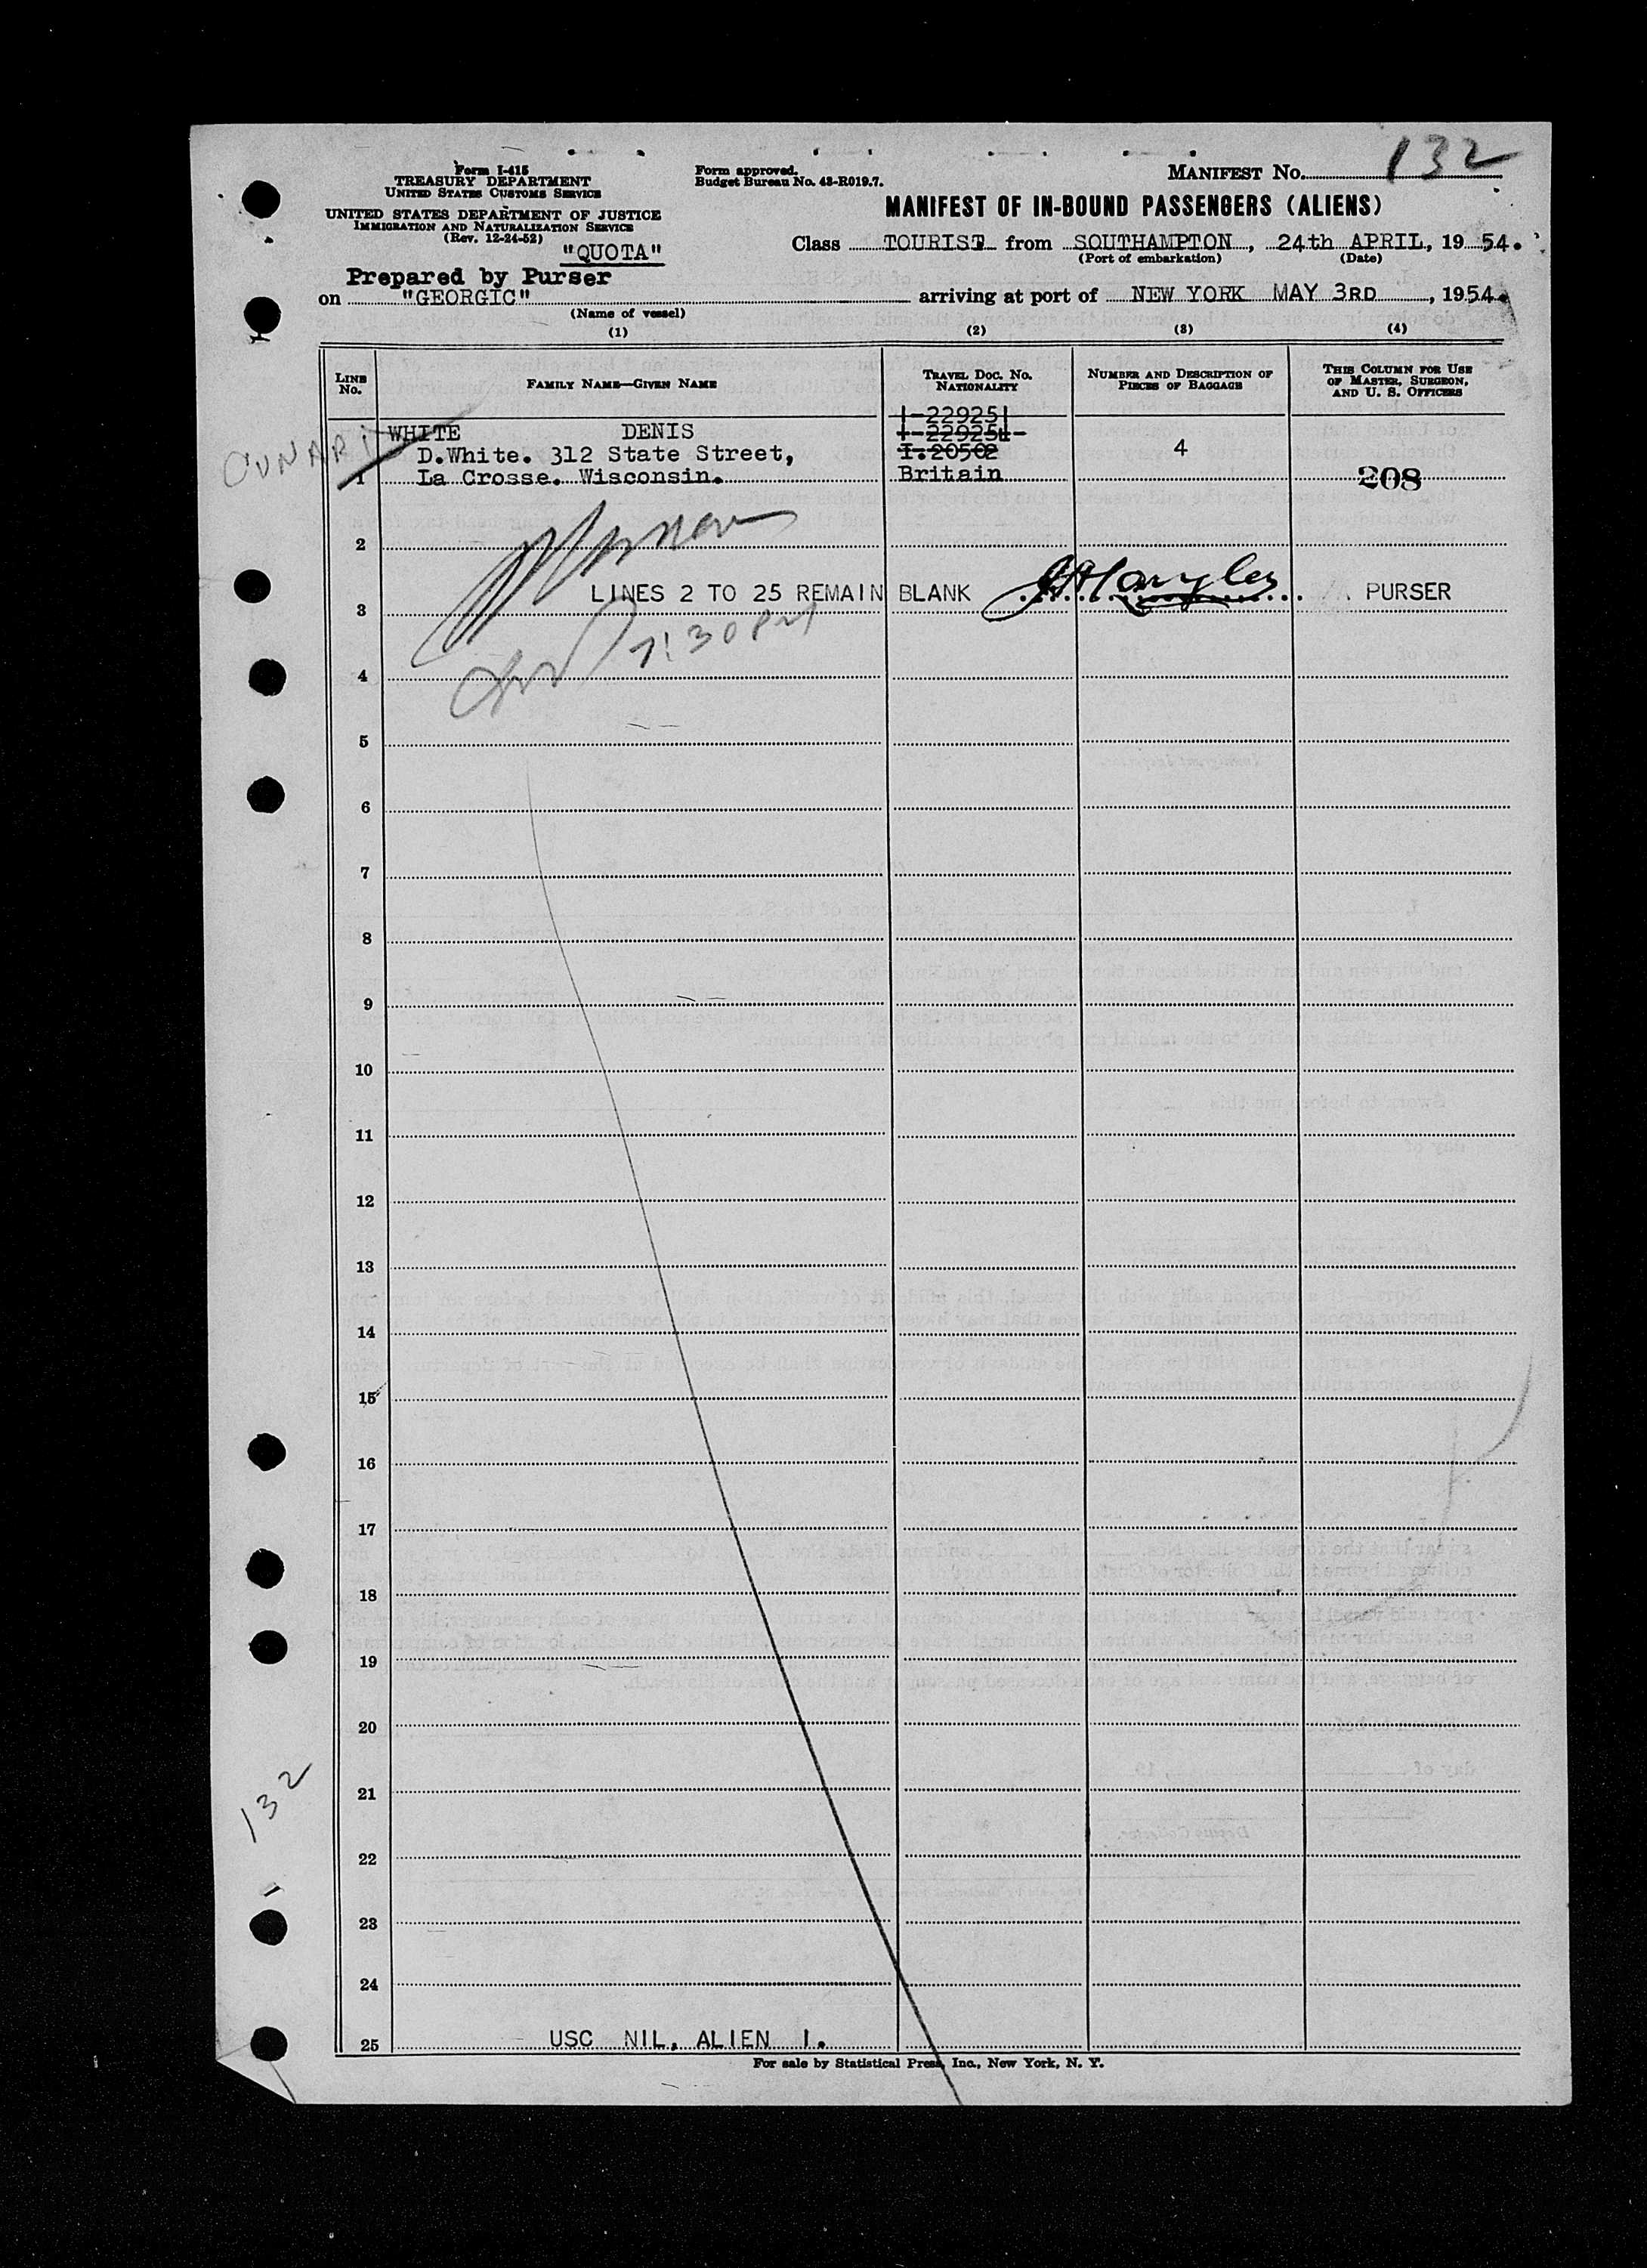 Form I-415
TREASURY DEPARTMENT
UNITED STATES CUSTOMS SERVICE
UNITED STATES DEPARTMENT OF JUSTICE
IMMIGRATION AND NATURALIZATION SERVICE
(Rev. 12-24-52)
"QUOTA"
Form approved.
Budget Bureau No. 43-R019.7.
MANIFEST No. 132
MANIFEST OF IN-BOUND PASSENGERS (ALIENS)
Class TOURIST from SOUTHAMPTON, 24th APRIL, 1954.
(Port of embarkation) (Date)
Prepared by Purser
on "GEORGIC" arriving at port of NEW YORK MAY 3RD, 1954.
(Name of vessel)
(1) (2) (3) (4)
LINE No.
FAMILY NAME—GIVEN NAME
TRAVEL DOC. NO. NATIONALITY
NUMBER AND DESCRIPTION OF PIECES OF BAGGAGE
THIS COLUMN FOR USE OF MASTER, SURGEON, AND U. S. OFFICERS
I-229251
WHITE DENIS
D.White. 312 State Street, I.20502 4
CUNARD
1 La Crosse. Wisconsin. Britain 208
2
LINES 2 TO 25 REMAIN BLANK PURSER
3
7:30 PM
4
5
6
7
8
9
10
11
12
13
14
15
16
17
18
19
20
132
21
22
23
24
25 USC NIL, ALIEN 1.
For sale by Statistical Press, Inc., New York, N. Y.